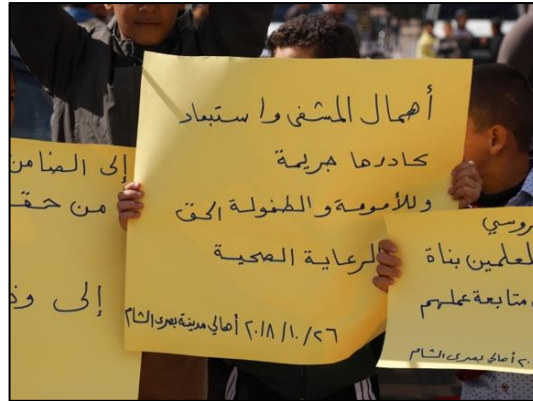 أهمال المشفى واستبعاد
كادرها جريمة
وللأمومة والطفولة الحق
الرعاية الصحية
٢٠١٨/١٠/٢٦ أهالي مدينة بصرى الشام
إلى الضامن
من حقـ
إلى
روسي
لمعلمين بناة
متابعة عملهم
أهالي بصرى الشام